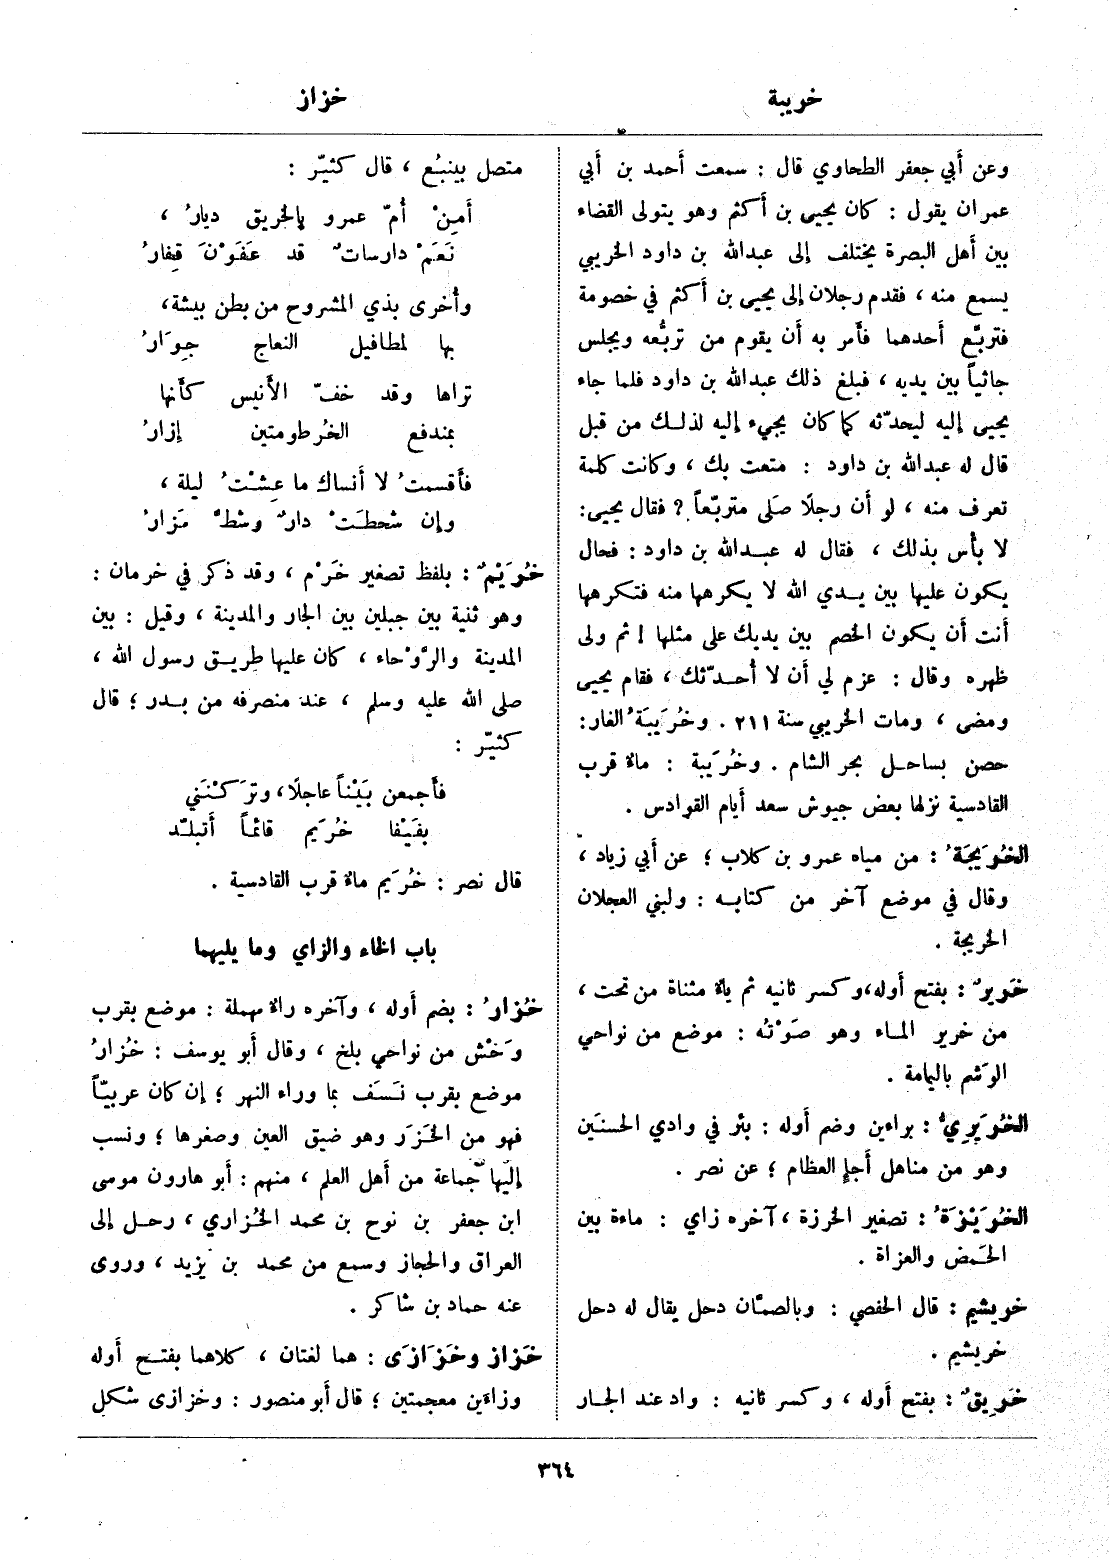 خريبة
خزاز
وعن أبي جعفر الطحاوي قال : سمعت أحمد بن أبي
عمران يقول : كان يحيى بن أكثم وهو يتولى القضاء
بين أهل البصرة يختلف إلى عبدالله بن داود الخريبي
يسمع منه ، فقدم رجلان إلى يحيى بن أكثم في خصومة
فتربّع أحدهما فأمر به أن يقوم من تربُّعه ويجلس
جاثياً بين يديه ، فبلغ ذلك عبدالله بن داود فلما جاء
يحيى إليه ليحدّثه كما كان يجيء إليه لذلك من قبل
قال له عبدالله بن داود : متعت بك ، وكانت كلمة
تعرف منه ، لو أن رجلًا صَلى متربّعاً ? فقال يحيى:
لا بأس بذلك ، فقال له عبدالله بن داود : فحال
يكون عليها بين يدي الله لا يكرهها منه فتكرهها
أنت أن يكون الخصم بين يديك على مثلها ! ثم ولى
ظهره وقال : عزم لي أن لا أُحدّثك ، فقام يحيى
ومضى ، ومات الخريبي سنة ٢١١ . وخُرَيبَةُ الغار:
حصن بساحل بحر الشام . وخُرَيبة : ماءٌ قرب
القادسية نزلها بعض جيوش سعد أيام القوادس .
الخُرَيجَةُ : من مياه عمرو بن كلاب ؛ عن أبي زياد ،
وقال في موضع آخر من كتابه : ولبني العجلان
الخريجة .
خَريرٌ : بفتح أوله،وكسر ثانيه ثم ياءٌ مثناة من تحت ،
من خرير الماء وهو صَوْتُه : موضع من نواحي
الوَشم باليمامة .
الخُرَيرِيُّ : براءين وضم أوله : بئر في وادي الحسنَين
وهو من مناهل أجإ العظام ؛ عن نصر .
الخُرَيْزَةُ : تصغير الخرزة ، آخره زاي : ماءة بين
الحَمض والعزاة .
خريشيم : قال الحفصي : وبالصمَّان دحل يقال له دحل
خريشيم .
خَرِيقٌ : بفتح أوله ، وكسر ثانيه : واد عند الجار
متصل بينبُع ، قال كثيّر :
أمِنْ أُمّ عمرو بالخريق ديارُ ،
نَعَمْ دارساتٌ قد عَفَوْنَ قِفارُ
وأُخرى بذي المشروح من بطن بيشة،
بها لمطافيل النعاج جِوَارُ
تراها وقد خفّ الأنيس كأنها
بمندفع الخُرطومتين إزارُ
فأقسمتُ لا أنساك ما عِشْتُ ليلة ،
وإن شحطَتْ دارٌ وشطَّ مَزارُ
خُرَيْمٌ : بلفظ تصغير خَرْم ، وقد ذكر في خرمان :
وهو ثنية بين جبلين بين الجار والمدينة ، وقيل : بين
المدينة والرَّوْحاء ، كان عليها طريق رسول الله ،
صلى الله عليه وسلم ، عند منصرفه من بدر ؛ قال
كثيّر :
فأجمعن بَيْناً عاجلًا، وترَكْنَني
بفَيْفا خُرَيم قائماً أتبلّد
قال نصر : خُرَيم ماءٌ قرب القادسية .
باب الخاء والزاي وما يليهما
خُزارُ : بضم أوله ، وآخره راءٌ مهملة : موضع بقرب
وَخْش من نواحي بلخ ، وقال أبو يوسف : خُزارُ
موضع بقرب نَسَف بما وراء النهر ؛ إن كان عربيّاً
فهو من الخَزَر وهو ضيق العين وصغرها ؛ ونسب
إليها جماعة من أهل العلم ، منهم : أبو هارون موسى
ابن جعفر بن نوح بن محمد الخُزاري ، رحل إلى
العراق والحجاز وسمع من محمد بن يزيد ، وروى
عنه حماد بن شاكر .
خَزاز وخَزَازَى : هما لغتان ، كلاهما بفتح أوله
وزاءَين معجمتين ؛ قال أبو منصور : وخزازى شكل
٣٦٤